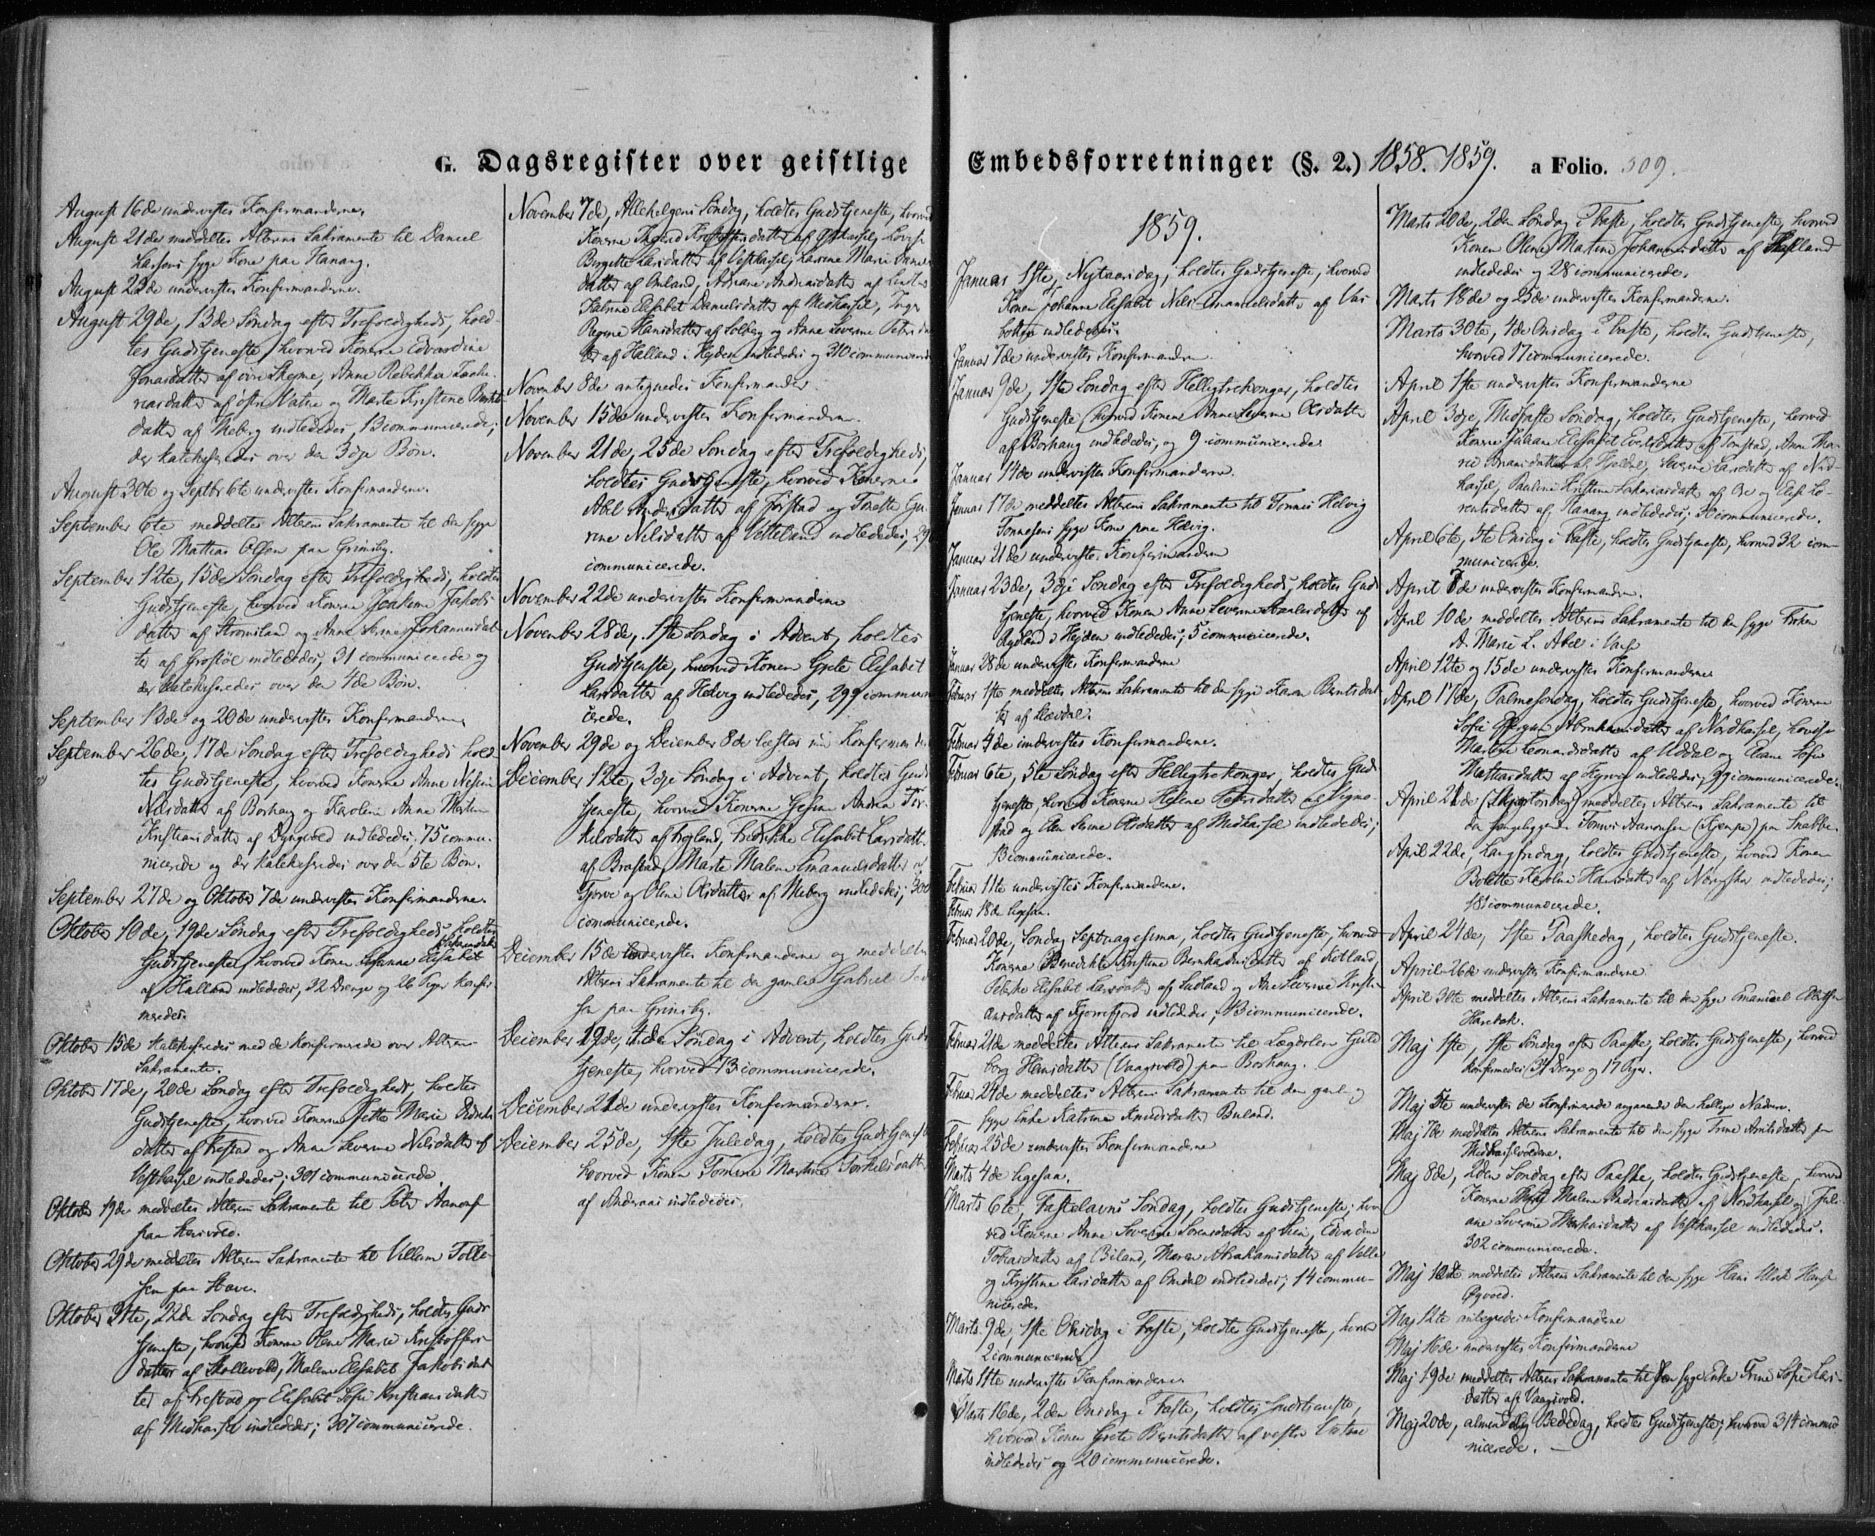 G. Dagsregister over geistlige Embedsforretninger (§. 2.) 1858. 1859. a Folio. 309.
August 16de undervistes Konfirmanderne.
August 21de meddeltes Alterens Sakramente til Daniel
Larsens syge Kone paa Hanang.
August 22de undervistes Konfirmanderne.
August 29de, 13de Søndag efter Trefoldigheds, hold-
tes Gudstjeneste, hvorved Konerne Edvardine
Jonasdatter af øvre Skeime, Anne Rebekka Zacha-
riasdatter af østre Vatne og Marte Kristene
datter af Neberg indlededes, 13 communicerede;
der katekiseredes over den 3die Bøn.
August 30te og Septbr 6te undervistes Konfirmanderne.
September 6te meddeltes Alterens Sakramente til den syge
Ole Mathias Olsen paa Grimsby.
September 12te, 15de Søndag efter Trefoldigheds, holdtes
Gudstjeneste, hvorved Konerne Joakime Jakobs-
datter af Stromsland og Anne Serine Johannesdat-
ter af Grostøl indlededes, 31 communicerede og
der katekiseredes over den 4de Bøn.
September 13de og 20de undervistes Konfirmanderne.
September 26de, 17de Søndag efter Trefoldigheds hold-
tes Gudstjeneste, hvorved Konerne Anne
Nilsdatter af Borhaug og Karoline Anne
Kristiansdatter af Dyngvold indlededes. 75 commu-
nicerede og der katekiseredes over den 5te Bøn.
September 27de og Oktober 7de undervistes Konfirmanderne.
Oktober 10de, 19de Søndag efter Trefoldigheds holdtes
Gudstjeneste, hvorved Konen Susanne Elisabet
af Halland indlededes, 22 Drenge og 26 Piger konfir-
meredes.
Oktober 15de katekiseredes med de konfirmerede over Alterens
Sakramente.
Oktober 17de, 20de Søndag efter Trefoldigheds, holdtes
Gudstjeneste, hvorved Konerne Jette Marie
datter af Frestad og Anne Severine Nilsdatter af
Vesthassel indlededes; 301 communicerede.
Oktober 19de meddeltes Alterens Sakramente til Peter
paa
Oktober 29de meddeltes Alterens Sakramente til Villum Tolle-
sen paa Stave.
Oktober 31te, 22de Søndag efter Trefoldigheds, holdtes Guds-
tjeneste, hvorved Konerne Olene Marie Kristoffers-
datter af Skollevold, Malene Elisabet Jakobsdat-
ter af Frestad og Elisabet Sofie Kristiansdatter
af Midhassel indlededes; 307 communicerede.
November 7de, Allehelgens Søndag, holdtes Gudstjeneste, hvorved
Konerne Ingrid af Østhassel, Lovise
Birgitte Larsdatter af Vesthassel, Marie
datter af Omland, Adriane Andreasdatter af
Elisabet Danielsdatter af Midhassel, Inger
Regine Hansdatter af Solberg og Anne Severine Peters
ter af Halland i Heyden indlededes og 310 communicerede
November 8de antegnedes Konfirmander.
November 15de undervistes Konfirmanderne.
November 21de, 25de Søndag efter Trefoldigheds,
holdtes Gudstjeneste, hvorved Konerne
Abel Andersdatter af Jørstad og Tonette Gu-
rine Nilsdatter af Vetteland indlededes, 29
communicerede.
November 22de undervistes Konfirmanderne
November 28de, 1ste Søndag i Advent, holdtes
Gudstjeneste, hvorved Konen Grete Elisabet
Larsdatter af Helvig indlededes, 299 communi-
cerede.
November 29de og December 8de læstes med Konfirmander
December 12te, 3die Søndag i Advent, holdtes Guds-
tjeneste, hvorved Konerne Gesine Andrea Tor-
kildsdatter af Fogland, Fredrikke Elisabet Larsdatter
af Brastad, Marte Malene Emanuelsdatter af
Tjørve og Olene Olsdatter af Neberg indlededes; 300
communicerede.
December 15de undervistes Konfirmanderne og meddeltes
Alterens Sakramente til den gamle Gabriel
sen paa Grimsby.
December 19de, 4de Søndag i Advent, holdtes Guds-
tjeneste, hvorved 73 communicerede.
December 21de undervistes Konfirmanderne.
December 25de, 1ste Juledag, holdtes Gudstjeneste
hvorved Konen Tomine Martine Torkildsdatter
af Andraas indlededes.
1859.
Januar 1ste, Nytaarsdag, holdtes Gudstjeneste, hvorved
Konen Johanne Elisabet Nils Emanuelsdatter af Var
indlededes.
Januar 7de undervistes Konfirmanderne
Januar 9de, 1ste Søndag efter Helligtrekonger, holdtes
Gudstjeneste, hvorved Konen Anne Severine Olsdatter
af Borhaug indlededes, og 9 communicerede
Januar 14de undervistes Konfirmanderne.
Januar 17de meddeltes Alterens Sakramente til Tønnes Helvig
Tønnesens syge Kone paa Helvig.
Januar 21de undervistes Konfirmanderne
Januar 23de, 3die Søndag efter Trefoldigheds, holdtes Guds-
tjeneste, hvorved Konen Anne Severine
Rødland i Heyden indlededes; 5 communicerede.
Januar 28de undervistes Konfirmanderne
Februar 1ste meddeltes Alterens Sakramente til den syge Karen Berntsdat-
ter af
Februar 4de undervistes Konfirmanderne.
Februar 6te, 5te Søndag efter Helligtrekonger, holdtes Guds-
tjeneste, hvorved Konerne Helene Pedersdatter af Vigme-
stad og Elen Serine Olsdatter af Midhassel indlededes;
13 communicerede.
Februar 11te undervistes Konfirmanderne.
Februar 18de ligesaa.
Februar 20de, Søndag Septuagesima, holdtes Gudstjeneste, hvorved
Konerne Benedikte Kristine af Kolland,
Elisabet Larsdatter af Sæland og Ane Severine Kristi-
ansdatter af Kjørrefjord indlededes, 13 communicerede.
Februar 21de meddeltes Alterens Sakramente til Lægdslem Guld-
borg Hansdatter (Vaagsvold) paa Borhaug.
Februar 24de meddeltes Alterens Sakramente til den gamle og
syge Enke Katrine Andersdatter Buland.
Februar 25de undervistes Konfirmanderne
Marts 4de ligesaa.
Marts 6te, Fastelavns Søndag, holdtes Gudstjeneste; hvor-
ved Konerne Anne Severine Sørensdatter af Lien, Edvardine
Tobiasdatter af Biland, Maren Abrahamsdatter af Velle
og Kristine Larsdatter af Omdal indlededes; 14 commu-
nicerede.
Marts 9de, 1ste Onsdag i Faste, holdtes Gudstjeneste, hvorved
2 communicerede
Marts 11te undervistes Konfirmanderne
Marts 16de, 2den Onsdag i Faste, holdtes Gudstjeneste,
hvorved Konen Grete Berntsdatter af vestre Vatne
indlededes og 20 communicerede.
Marts 20de, 2den Søndag i Faste, holdtes Gudstjeneste, hvorved
Konen Olene Martine Johannesdatter af
indlededes og 28 communicerede.
Marts 18de og 25de undervistes Konfirmanderne.
Marts 30te, 4de Onsdag i Faste, holdtes Gudstjeneste,
hvorved 17 communicerede.
April 1ste undervistes Konfirmanderne
April 3die, Midfaste Søndag, holdtes Gudstjeneste, hvorved
Konerne Juliane Elisabet Evertsdatter af Jonstad, Anne Tha-
rie af Fjeldsæ, Serine Larsdatter af Nord-
hassel, Pauline Kristine Sakariasdatter af Ore og Else Lo-
rentsdatter af Hanang indlededes; 30 communicerede.
April 6te, 5te Onsdag i Faste, holdtes Gudstjeneste, hvorved 32 com-
municerede.
April 7de undervistes Konfirmanderne.
April 10de meddeltes Alterens Sakramente til den syge Frøken
A. Marie L. Abel i
April 12te og 15de undervistes Konfirmanderne
April 17de, Palmesøndag, holdtes Gudstjeneste, hvorved Konerne
Sofie Abrahamsdatter af Nordhassel, Lovise
Marie Leonardsdatter af Uddal og Elene Sofie
Mathiasdatter af indlededes; 99 communicerede.
April 21de (Skjærtorsdag) meddeltes Alterens Sakramente til
den sengeliggende Tønnes Aanonsen (Kjempe) paa Snekke-
April 22de, Langfredag, holdtes Gudstjeneste, hvorved Konen
Bolette Karoline Hansdatter af indlededes;
181 communicerede.
April 24de, 1ste Paaskedag, holdtes Gudstjeneste.
April 26de undervistes Konfirmanderne
April 30te meddeltes Alterens Sakramente til den syge Emanuel
Maj 1ste, 1ste Søndag efter Paaske, holdtes Gudstjeneste, hvorved
konfirmeredes 34 Drenge og 17 Piger.
Maj 5te undervistes de Konfirmerede angaaende den hellige Nadvere.
Maj 7de meddeltes Alterens Sakramente til den syge Trine Arntsdatter paa
Midhasselvolden.
Maj 8de, 2den Søndag efter Paaske, holdtes Gudstjeneste, hvorved
Konerne Malene Andreasdatter af Nordhassel og Juli-
ane Severine Mathiasdatter af Vesthassel indlededes.
302 communicerede.
Maj 10de meddeltes Alterens Sakramente til den syge Hans
Maj 12te antegnedes Konfirmanderne
Maj 16de undervistes Konfirmanderne
Maj 19de meddeltes Alterens Sakramente til den syge Enke Trine Sofie Lars-
datter af Vaagsvold.
Maj 20de, almindelig Bededag, holdtes Gudstjeneste; hvorved 314 commu-
nicerede.